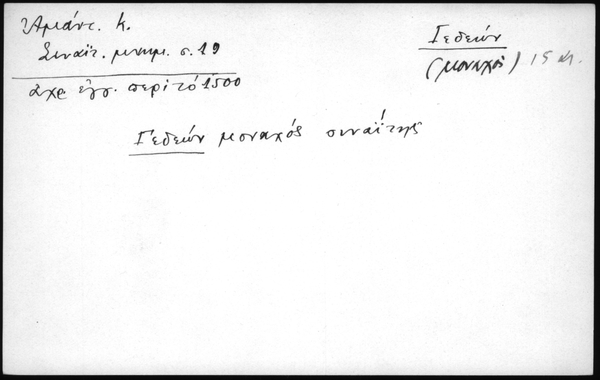 Ἀμάντ. Κ.
Σιναϊτ. μνημ. σ. 19
ἀχρ ἔγγ. περὶ τὸ 1500
Γεδεών
(μοναχός) 15 αἰ.
Γεδεών μοναχός σιναΐτης